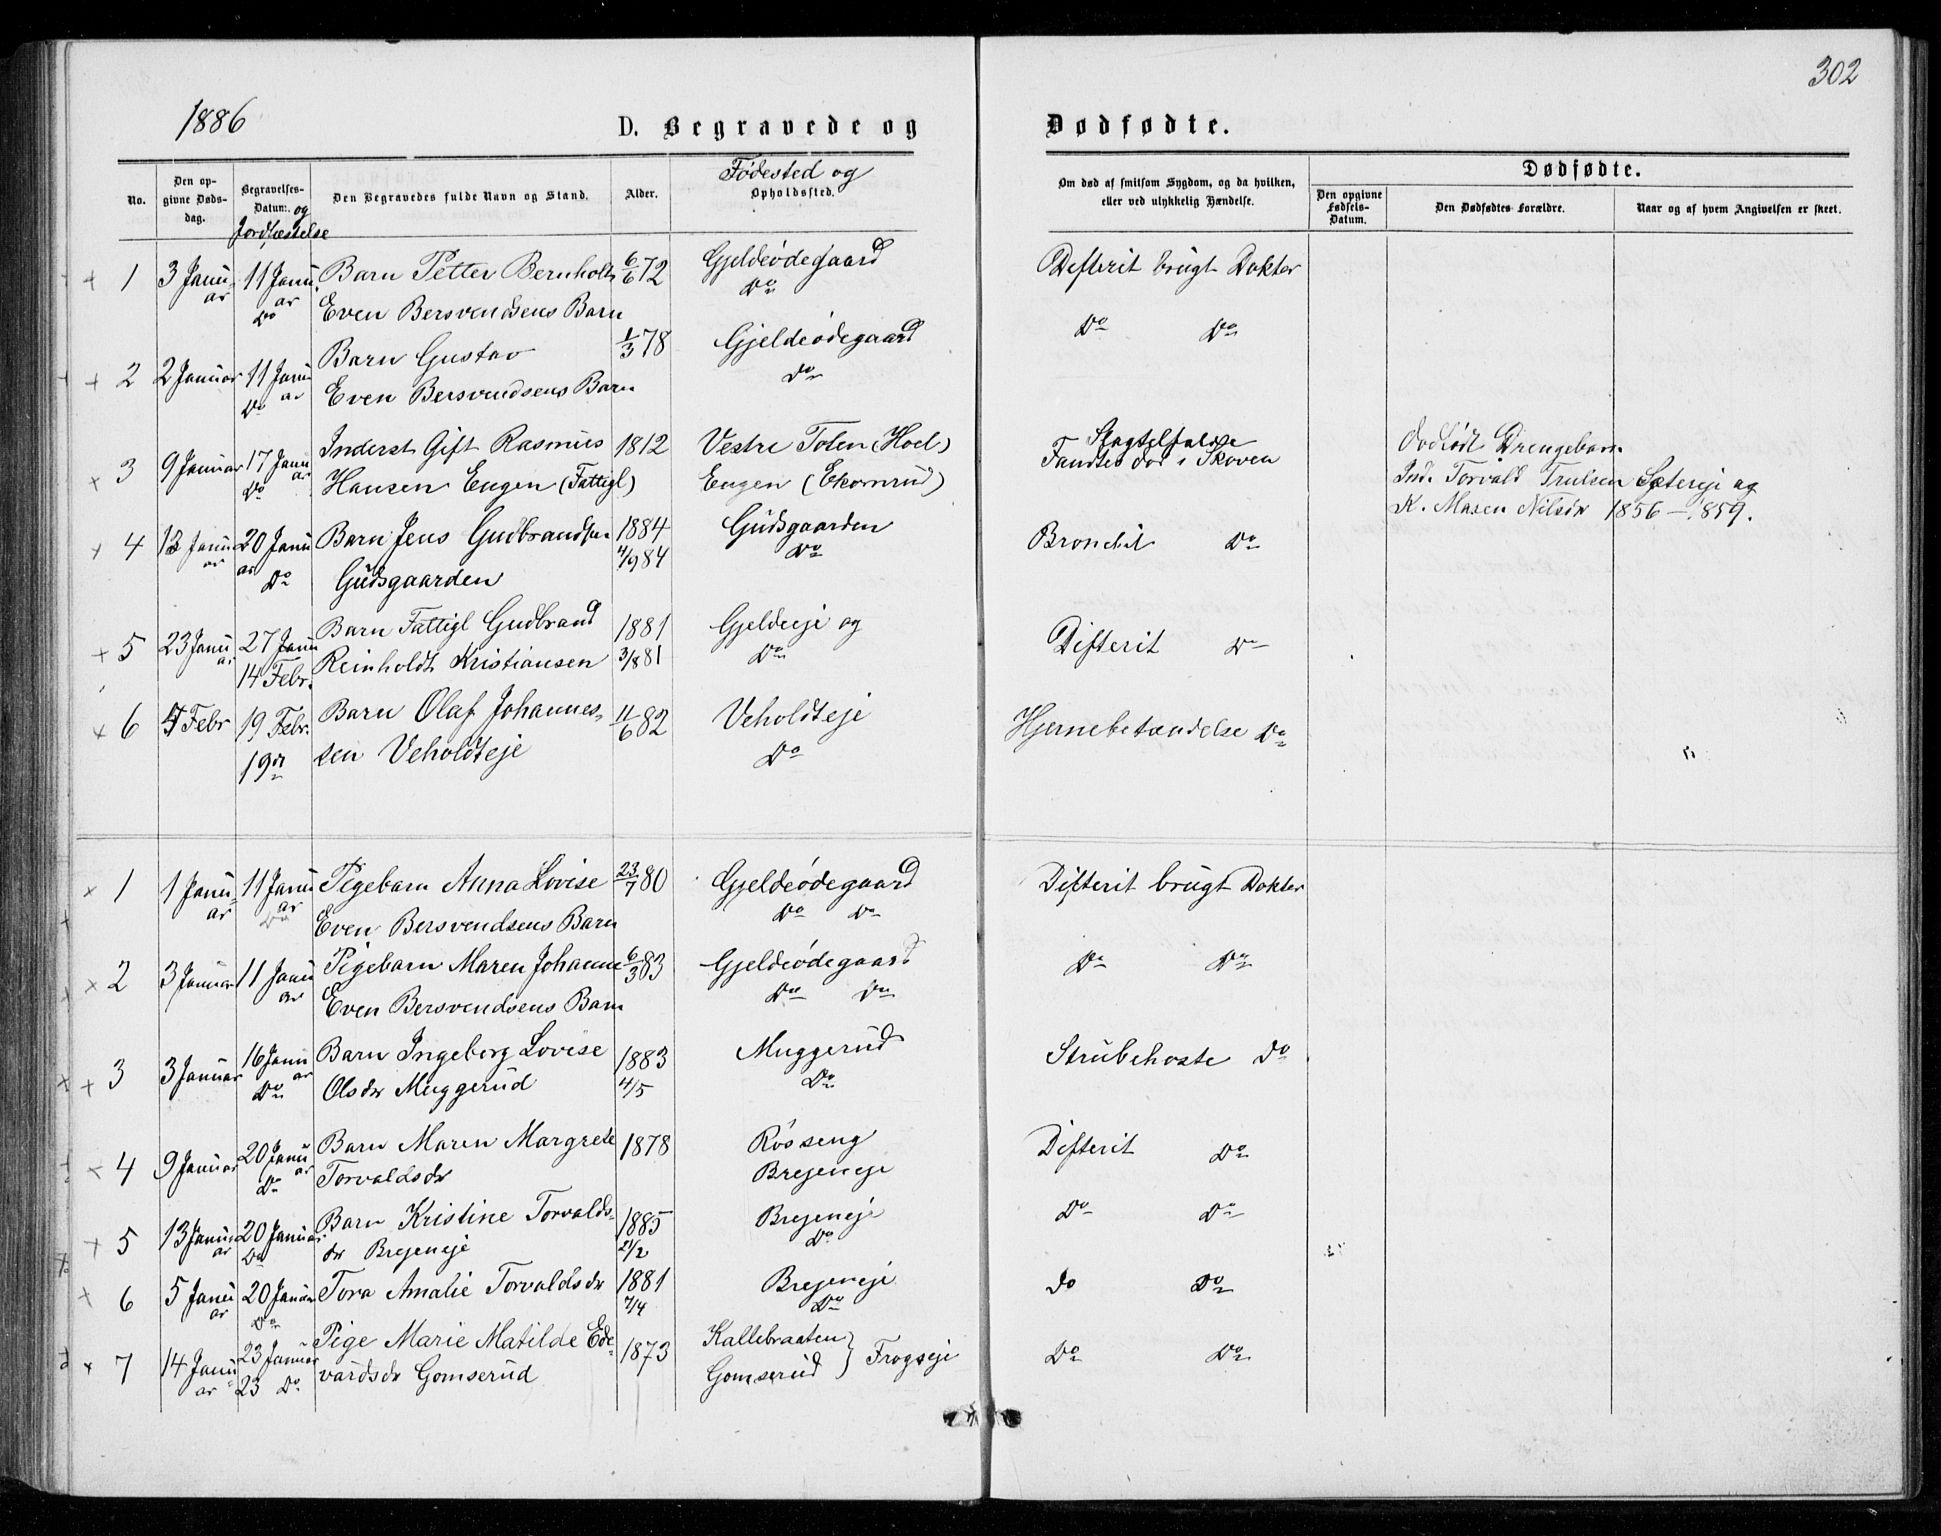 302
1886
D. Begravede og
Dødfødte.
No.
Den op-
givne Døds-
dag.
Begravelses-
Datum. og
Jordfæstelse
Den Begravedes fulde Navn og Stand.
Alder.
Fødested og
Opholdssted.
Om død af smitsom Sygdom, og da hvilken,
eller ved ulykkelig Hændelse.
Dødfødte.
Den opgivne
Fødsels-
Datum.
Den Dødfødtes Forældre.
Naar og af hvem Angivelsen er skeet.
1 3 Janu- 11 Janu. Barn Petter Bernholt 6/6 72 Gjeldeødegaard Difterit brugt Dokter
ar ar Do Even Bersvendsens Barn Do
2 2 Januar 11 Janu Barn Gustav 1/3 78 Gjeldeødegaard Do Do
Do ar Even Bersvendsens Barn do
3 9 Januar 17 Janu Inderst Gift Rasmus 1812 Vestre Toten (Hoel) Slagtilfælde
ar Do Hansen Engen (Fattigl) Engen (Ekornrud) Fandtes død i Skoven
Dødfødt Drengebarn
Ind. Torvald Trulsen Sætereje og
K. Maren Nilsdr 1856 – 1859.
4 13 Janu 20 Janu Barn Jens Gudbrandsen 1884 Gudsgaarden Bronchit Do
ar ar Do Gudsgaarden 4/9 84 Do
5 23 Janu 27 Janu Barn Fattigl Gudbrand 1881 Gjeldeeje og Difterit Do
ar 14 Febr. Reinholdt Kristiansen 3/8 81 Do
6 Febr 19 Febr. Barn Olaf Johannes- 11/6 82 Veholdteje Hjernebetændelse Do
19 sen Veholdteje Do
1 1 Janu- 11 Janu Pigebarn Anna Lovise 23/7 80 Gjeldeødegaard Difterit brugt Dokter
ar ar Do Even Bersvendsens Barn Do Do
2 3 Januar 11 Janu Pigebarn Maren Johanne 6/3 83 Gjeldeødegaard Do Do
ar Even Bersvendsens Barn Do Do
3 3 Januar 16 Janu Barn Ingeborg Lovise 1883 Muggerud Strubehoste do
ar Do Olsdr Muggerud 4/5 Do
4 9 Januar 20 Janu Barn Maren Margrete 1878 Røsseng Difterit Do
ar Do Torvaldsdr Brejeneje
5 13 Janu 20 Januar Barn Kristine Torvalds- 1885 Brejeneje Do Do
ar Do dr Brejeneje 21/2 Do
6 5 Janu 20 Januar Tora Amalie Torvaldsdr 1881 Brejeneje do Do
ar Do 7/4 Do
7 14 Janu 23 Januar Pige Marie Matilde Ede- 1873 Kallebraaten } Frogseje Do Do
ar 23 Do vardsdr Gomserud Gomserud